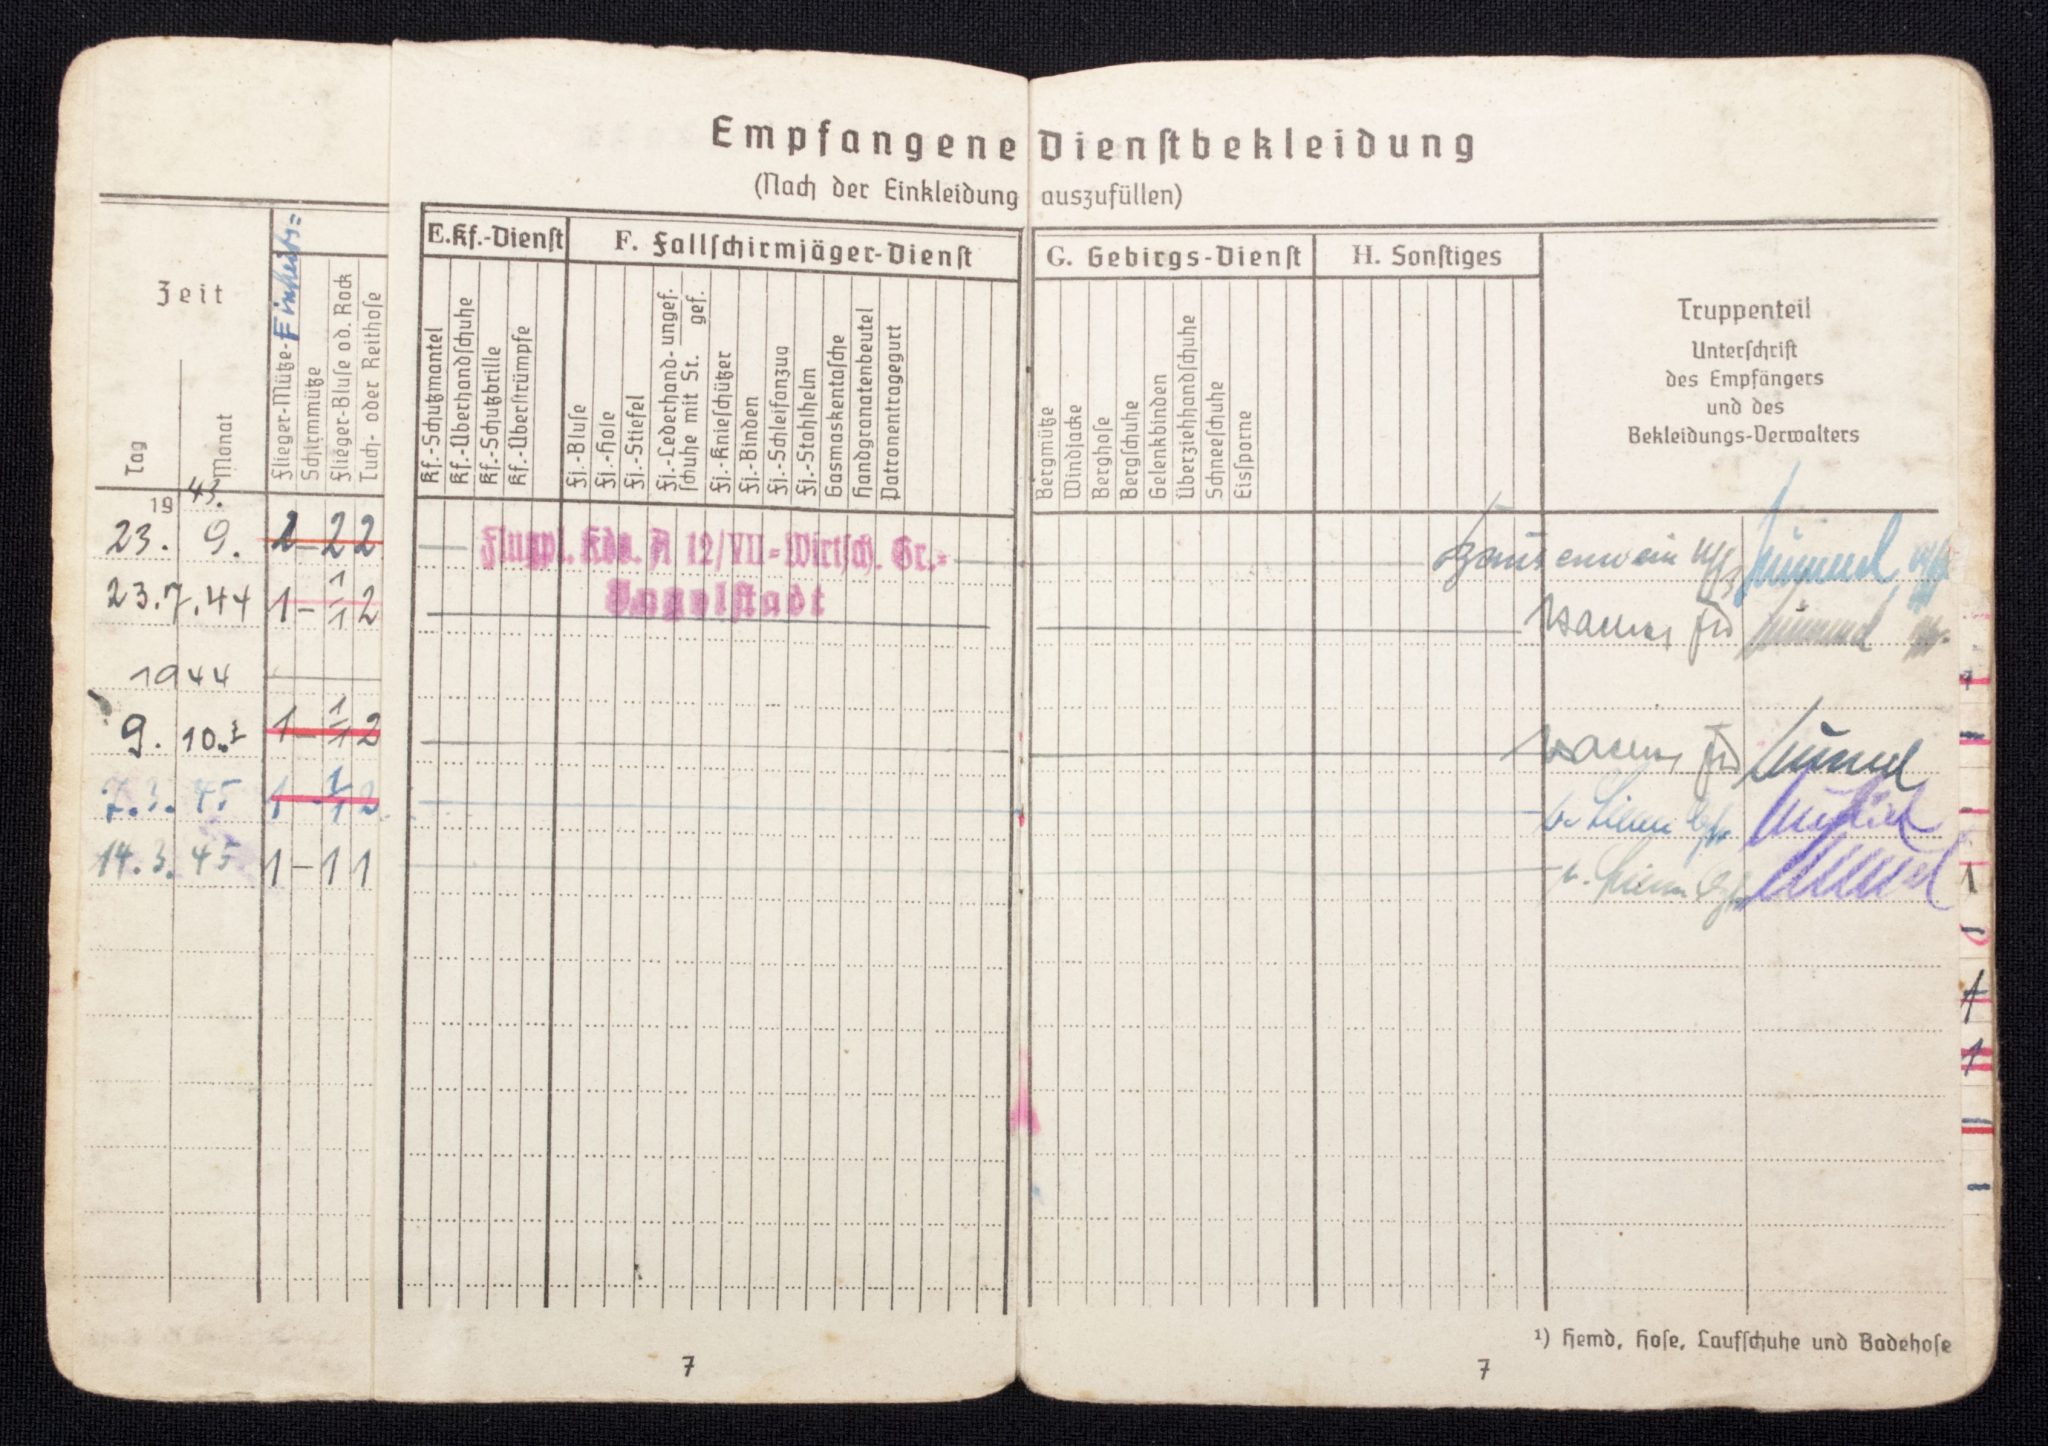 Empfangene Dienstbekleidung
(Nach der Einkleidung auszufüllen)
Zeit
Tag
Monat
Flieger-Mütze-
Schirmmütze
Flieger-Bluse od. Rock
Tuch- oder Reithose
E. Kf.-Dienst
Kf.-Schutzmantel
Kf.-Überhandschuhe
Kf.-Schutzbrille
Kf.-Überstrümpfe
F. Fallschirmjäger-Dienst
Fj.-Bluse
Fj.-Hose
Fj.-Stiefel
Fj.-Lederhand- ungef.
schuhe mit St. gef.
Fj.-Knieschützer
Fj.-Binden
Fj.-Schleifanzug
Fj.-Stahlhelm
Gasmaskentasche
Handgranatenbeutel
Patronentragegurt
G. Gebirgs-Dienst
Bergmütze
Windjacke
Berghose
Bergschuhe
Gelenkbinden
Überziehhandschuhe
Schneeschuhe
Eissporne
H. Sonstiges
Truppenteil
Unterschrift
des Empfängers
und des
Bekleidungs-Verwalters
19 43.
23. 9. 2 – 2 2 Flugpl. Kdo. A 12/VII - Wirtsch. Gr.-
Ingolstadt
23.7.44 1 – 1/1 2
1944
9. 10. 1 – 1/1 2
7.3.45 1 - 1/1 2
14.3.45 1 – 1 1
¹) Hemd, Hose, Laufschuhe und Badehose
7
7